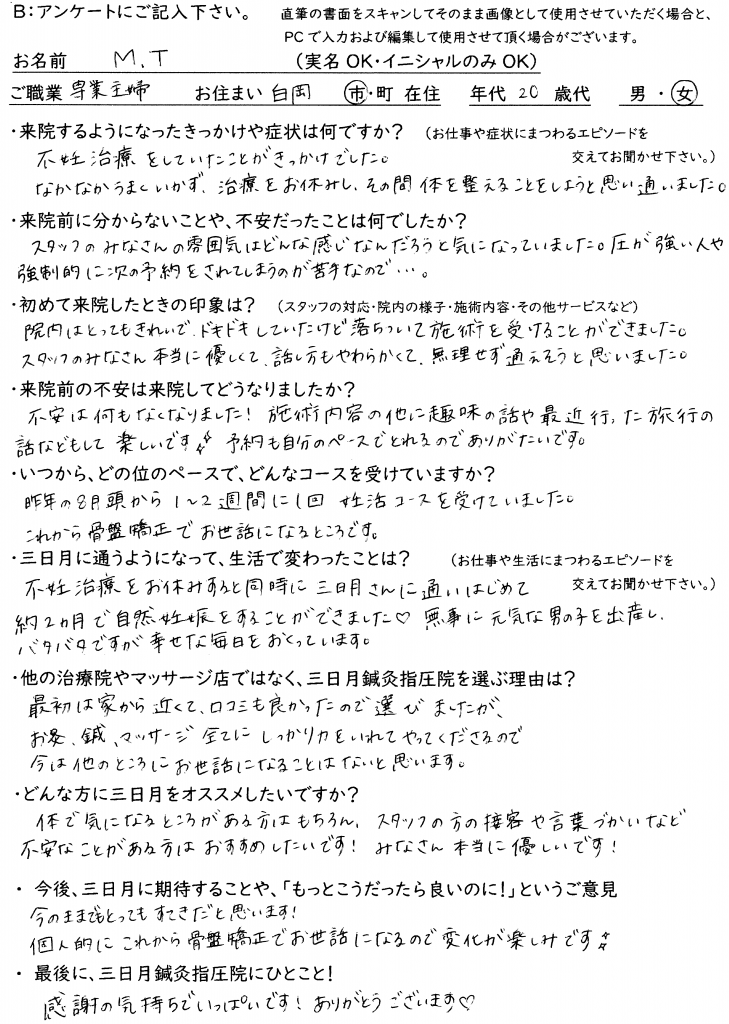 B:アンケートにご記入下さい。 直筆の書面をスキャンしてそのまま画像として使用させていただく場合と、
PCで入力および編集して使用させて頂く場合がございます。
お名前 M.T (実名OK・イニシャルのみOK)
ご職業 専業主婦 お住まい 白岡 市・町 在住 年代 20 歳代 男・女
・来院するようになったきっかけや症状は何ですか? (お仕事や症状にまつわるエピソードを
不妊治療をしていたことがきっかけでした。 交えてお聞かせ下さい。)
なかなかうまくいかず、治療をお休みし、その間体を整えることをしようと思い通いました。
・来院前に分からないことや、不安だったことは何でしたか?
スタッフのみなさんの雰囲気はどんな感じなんだろうと気になっていました。圧が強い人や
強制的に次の予約をされてしまうのが苦手なので…。
・初めて来院したときの印象は? (スタッフの対応・院内の様子・施術内容・その他サービスなど)
院内はとってもきれいで、ドキドキしていたけど落ちついて施術を受けることができました。
スタッフのみなさん本当に優しくて、話し方もやわらかくて、無理せず通えそうと思いました。
・来院前の不安は来院してどうなりましたか?
不安は何もなくなりました! 施術内容の他に趣味の話や最近行った旅行の
話などもして楽しいです 予約も自分のペースでとれるのでありがたいです。
・いつから、どの位のペースで、どんなコースを受けていますか?
昨年の8月頭から1~2週間に1回 妊活コースを受けていました。
これから骨盤矯正でお世話になるところです。
・三日月に通うようになって、生活で変わったことは? (お仕事や生活にまつわるエピソードを
不妊治療をお休みすると同時に三日月さんに通いはじめて 交えてお聞かせ下さい。)
約2カ月で自然妊娠をすることができました♡ 無事に元気な男の子を出産し、
バタバタですが幸せな毎日をおくっています。
・他の治療院やマッサージ店ではなく、三日月鍼灸指圧院を選ぶ理由は?
最初は家から近くて、口コミも良かったので選びましたが、
お灸、鍼、マッサージ全てにしっかり力をいれてやってくださるので
今は他のところにお世話になることはないと思います。
・どんな方に三日月をオススメしたいですか?
体で気になるところがある方はもちろん、スタッフの方の接客や言葉づかいなど
不安なことがある方はおすすめしたいです! みなさん本当に優しいです!
・ 今後、三日月に期待することや、「もっとこうだったら良いのに!」というご意見
今のままでもとってもすてきだと思います!
個人的にこれから骨盤矯正でお世話になるので変化が楽しみです
・ 最後に、三日月鍼灸指圧院にひとこと!
感謝の気持ちでいっぱいです! ありがとうございます♡